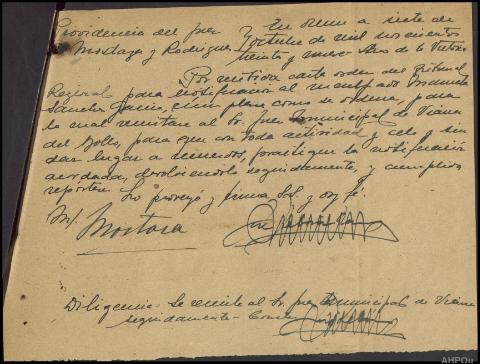 Providencia del Juez En Orense a siete de
Mostaza y Rodrigue Octubre de mil novecientos
treinta y nueve Año de la Victoria
Por recibida carta orden del Tribunal
Regional para notificación al inculpado
Sancho cúmplase como se ordena, para
lo cual remitase al Sr Juez Municipal de Viana
del Bollo, para que con toda actividad y celo y sin
dar lugar a recuerdos, practique la notificación
acordada, devolviendola seguidamente, y cumplida
reportese.
Lo proveyó y firma SSª y doy fé.
M/ Mostaza
Diligencia - Se remite al Sr. Juez Municipal de Viana
seguidamente -
AHPOu